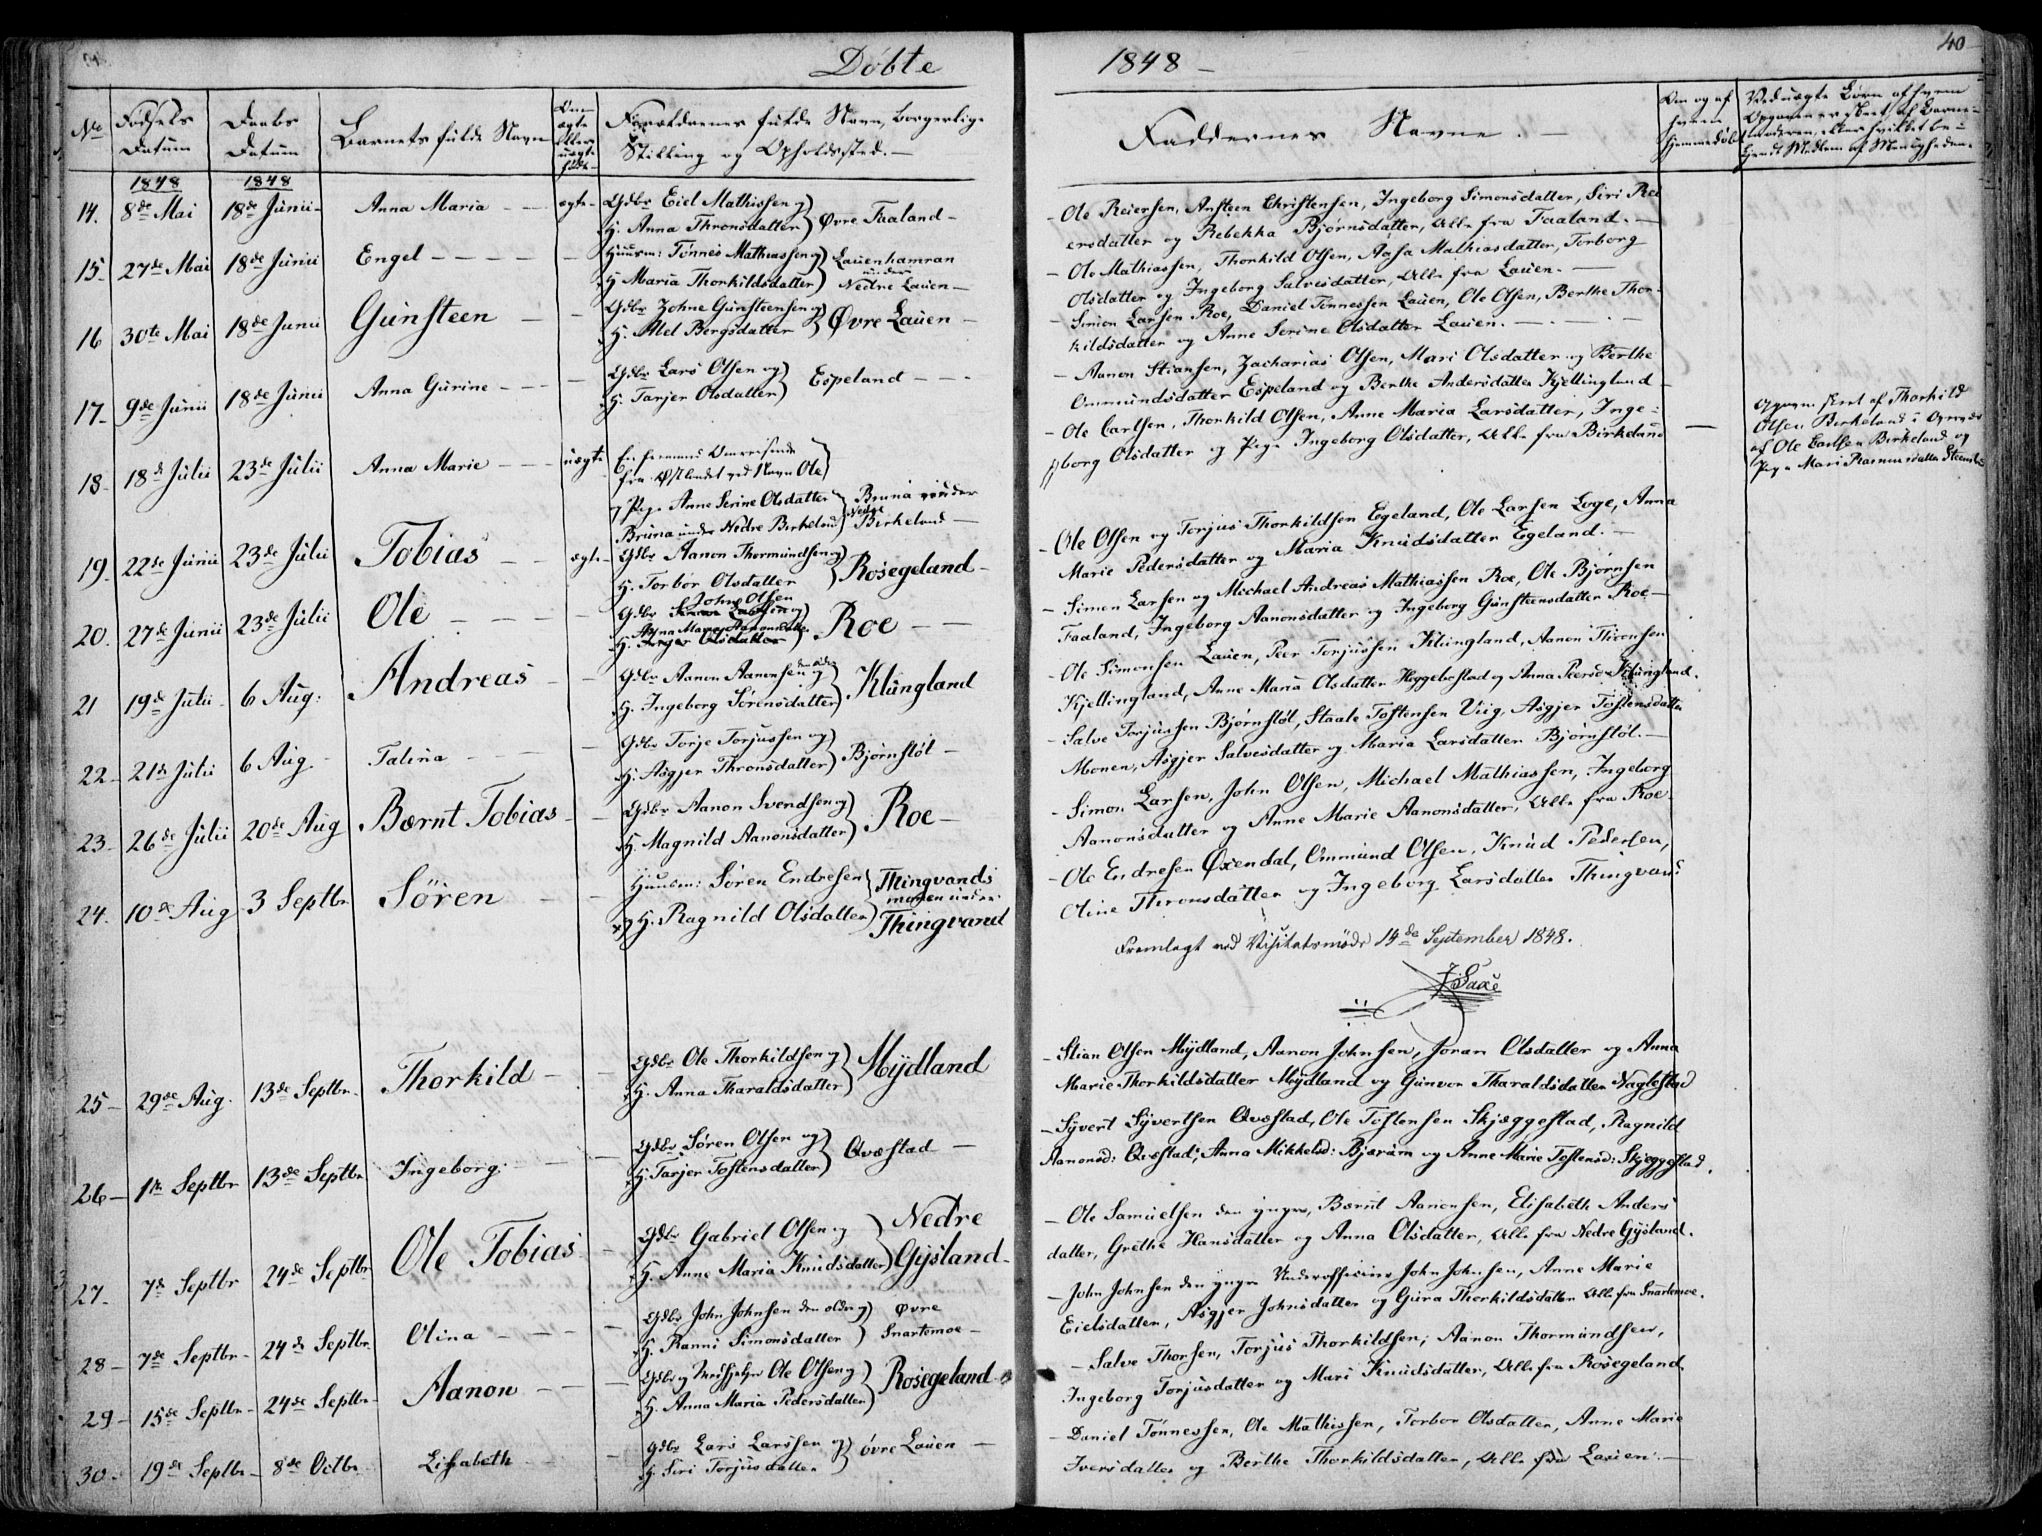 Døbte
1848 —
40
No
Fødsels Datum
Daabs Datum
Barnets fulde Navn
Om ægte eller uægte født
Forældrenes fulde Navn, borgerlige Stilling og Opholdssted. —
Faddernes Navne. —
Om og af hvem Hjemmedøbt
1848 1848
14. 8de Mai 18de Junii Anna Maria — ægte
Gdbr Eiel Mathissen og
H. Anna Thronsdatter Øvre Faaland —
— Ole Reiersen, Ansteen Christensen, Ingeborg Simonsdatter, Siri Rei
ersdatter og Rebekka Bjørnsdatter, Alle fra Faaland. —
15. 27de Mai 18de Junii Engel — — — —
Huusm: Tønnes Mathiassen og
H Maria Thorkildsdatter Lauenhamran under Nedre Lauen —
— Ole Mathiassen, Thorkild Olsen, Aasa Mathiasdatter, Torborg
Olsdatter og Ingeborg Salvesdatter, Alle fra Lauen. —
16 30te Mai 18de Junii Gunsteen —
Gdbr Johne Gunsteensen og
H. Abel Borgsdatter Øvre Lauen —
— Simon Larsen Roe, Daniel Tønnessen Lauen, Ole Olsen, Berthe Thor-
kildsdatter og Anne Serine Olsdatter Lauen. —
17. 9de Junii 18de Junii Anna Gurine — —
Gdbr Lars Olsen og
H. Tarjer Olsdatter Espeland — —
— Aanon Stiansen, Zacharias Olsen, Mari Olsdatter og Berthe
Ommundsdatter Espeland og Berthe Andersdatter Kjellingland
18. 18de Julii 23de Julii Anna Marie — — uægte
fra Østlandet ved Navn Ole
og Pige Anne Serine Olsdatter
Bruna under Nedre Birkeland Bruna under Nedre Birkeland —
— Ole Carlsen, Thorkild Olsen, Anne Maria Larsdatter, Inge-
borg Olsdatter og Pige Ingeborg Olsdatter, Alle fra Birkeland
— Thorkild
Olsen Birkeland
af Ole Carlsen Birkeland og
Pige Mari Rasmusdatter
19. 22de Junii 23de Julii Tobias — ægte
Gdbr Aanon Thormundsen og
H. Torbor Olsdatter Rosegeland —
— Ole Olsen og Torjus Thorkildsen Egeland, Ole Larsen Loge, Anna
Marie Pedersdatter og Maria Knudsdatter Egeland. —
20. 27de Junii 23de Julii Ole — — —
John Olsen
Gdbr Simon Larsen og
Anna Marie Aanonsdatter
H. Tarjer Olsdatter Roe — —
— Simon Larsen og Michael Andreas Mathiassen Roe, Ole Bjørnsen
Faaland, Ingeborg Aanonsdatter og Ingeborg Gunsteensdatter Roe —
21 19de Julii 6 Aug: Andreas —
Gdbr Aanon Aanonsen den ældre og
H. Ingeborg Sørensdatter Klungland
— Ole Simonsen Lauen, Peer Torjussen Klungland, Aanon Thronsen
Kjellingland, Anne Maria Olsdatter Heggebostad og Anna Peersd. Klungland.
22 — 21de Julii 6 Aug. Talina —
Gdbr Torje Torjussen og
H. Asgjer Thronsdatter Bjørnstøl —
— Salve Torjussen Bjørnstøl, Staale Tostensen Viig, Asgjer Tostensdatter
Monen, Asgjer Salvesdatter og Maria Larsdatter Bjørnstøl. —
23 — 26de Julii 20de Aug Bærnt Tobias —
Gdbr Aanon Svendsen og
H. Magnild Aanonsdatter Roe —
— Simon Larsen, John Olsen, Michael Mathiassen, Ingeborg
Aanonsdatter og Anne Marie Aanonsdatter, Alle fra Roe.
24. 10de Aug 3 Septbr Søren —
Huusm: Søren Endresen
og H. Ragnild Olsdatter Thingvands moen under Thingvand
— Ole Endresen Øxendal, Ommund Olsen, Knud Pedersen,
Oline Thronsdatter og Ingeborg Larsdatter Thingvand
Fremlagt ved Visitatsmøde 14de September 1848.
JSaxe
25 — 29de Aug. 13de Septbr. Thorkild —
Gdbr Ole Thorkildsen og
H. Anna Tharaldsdatter Mydland
— Stian Olsen Mydland, Aanon Johnsen, Joran Olsdatter og Anna
Marie Thorkildsdatter Mydland og Gunvor Tharaldsdatter Naglestad
26 — 1te Septbr 13de Septbr Ingeborg. —
Gdbr Søren Olsen og
H. Tarjer Tostensdatter Qvæstad —
— Syvert Syvertsen Qvæstad, Ole Tostensen Skjæggestad, Ragnild
Aanonsd: Qvæstad, Anna Mikkelsd: Bjærum og Anne Marie Tostensd: Skjeggestad.
27. 7de Septbr 24de Septbr Ole Tobias —
Gdbr Gabriel Olsen og
H. Anne Maria Knudsdatter Nedre Gysland —
— Ole Samuelsen den yngre, Bærnt Aanonsen, Elisabeth Anders
datter, Grethe Hansdatter og Anna Olsdatter, Alle fra Nedre Gysland.
28 — 7de Septbr — 24de Septbr Olina — — —
Gdbr John Johnsen den ældre og
H. Ranni Simonsdatter Øvre Snartemoe —
— John Johnsen den yngre Underofficier John Johnsen, Anne Marie
Eielsdatter, Asgjer Johnsdatter og Gura Thorkildsdatter Alle fra Snartemoe.
29 — 15de Septbr — 24de Septbr — Aanon — —
Gdbr og Ole Olsen og
H. Anna Maria Pedersdatter Rosegeland
— Salve Thorsen, Torjus Thorkildsen, Aanon Thormundsen,
Ingeborg Torjusdatter og Mari Knudsdatter, Alle fra Rosegeland.
30. 19de Septbr — 8de Octbr Lisabeth —
Gdbr Lars Larssen og
H Siri Torjusdatter øvre Lauen —
— Daniel Tønnessen, Ole Mathissen, Torbor Olsdatter, Anne Marie
Iversdatter og Berthe Thorkildsdatter, Alle fra Lauen. —